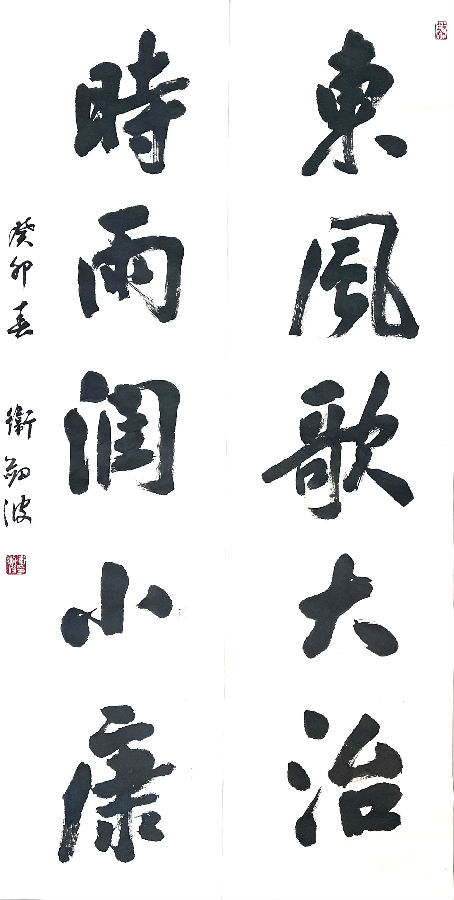 東風歌大治
時雨润小康
癸卯春 衛劍波